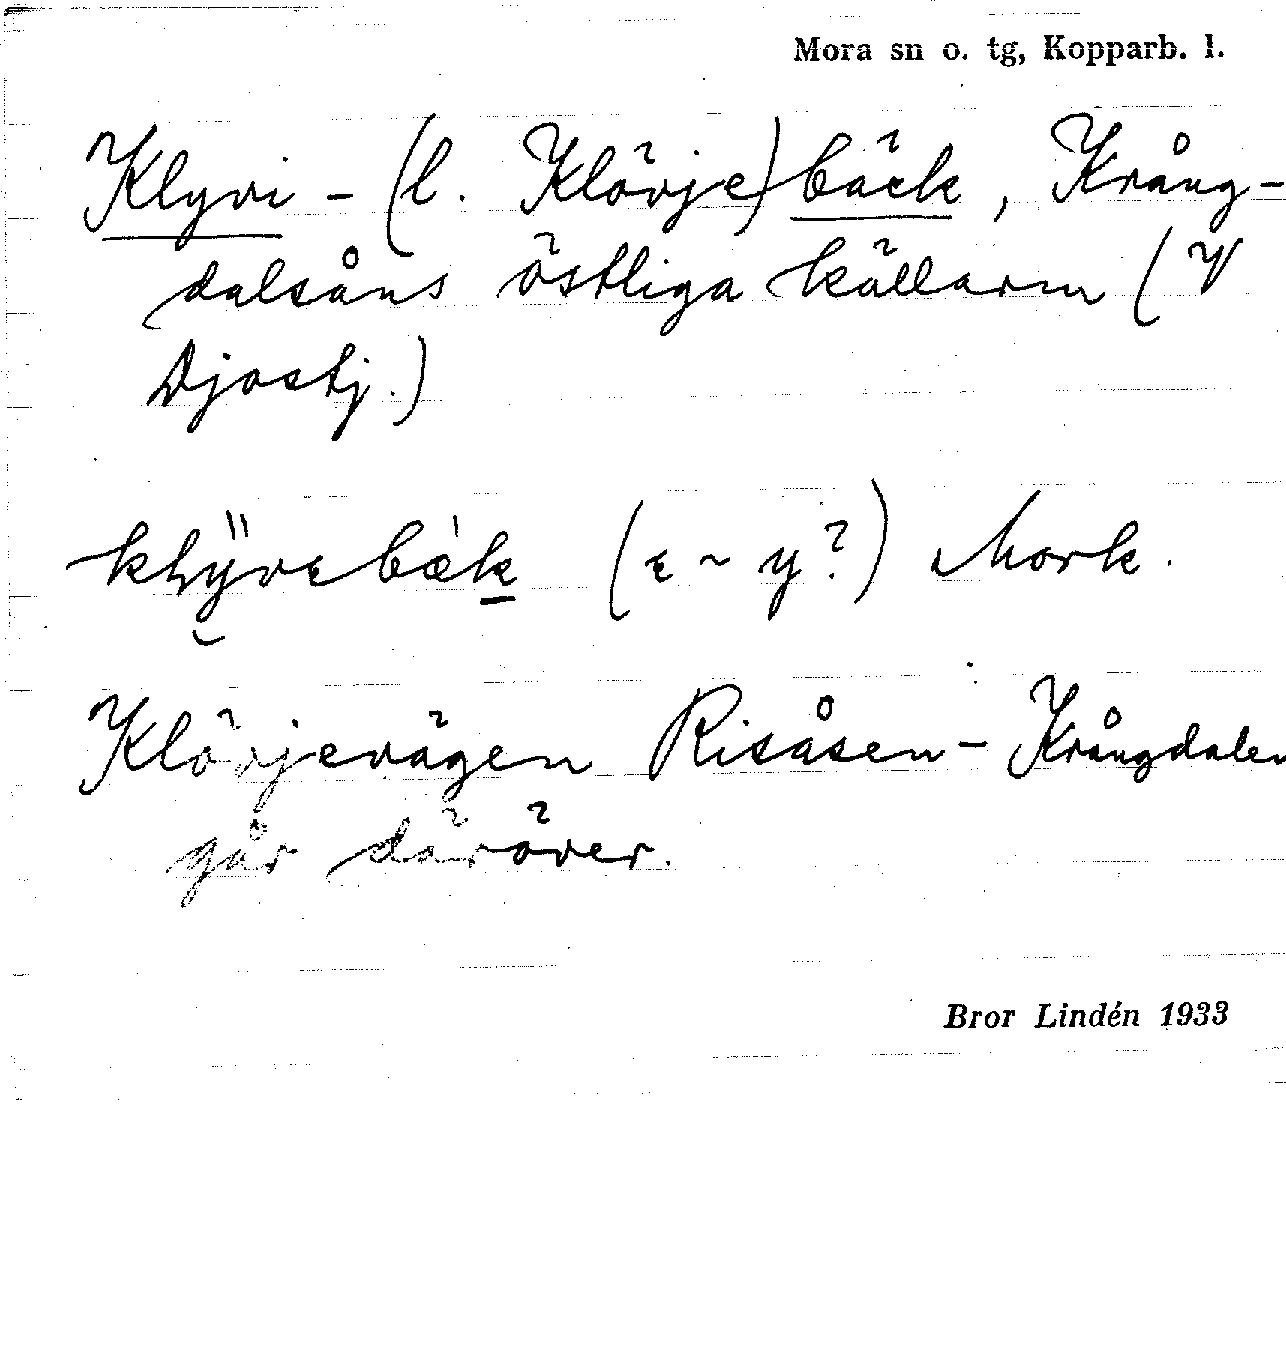 Mora sn o. tg, Kopparb. l.
Klyvi-(l. Klövje)bäck, Krång-
dalsåns östliga källarm (V
Djostj.)
(ε ~ y?) Mork.
Klövjevägen Risåsen - Krångdalen
går däröver.
Bror Lindén 1933